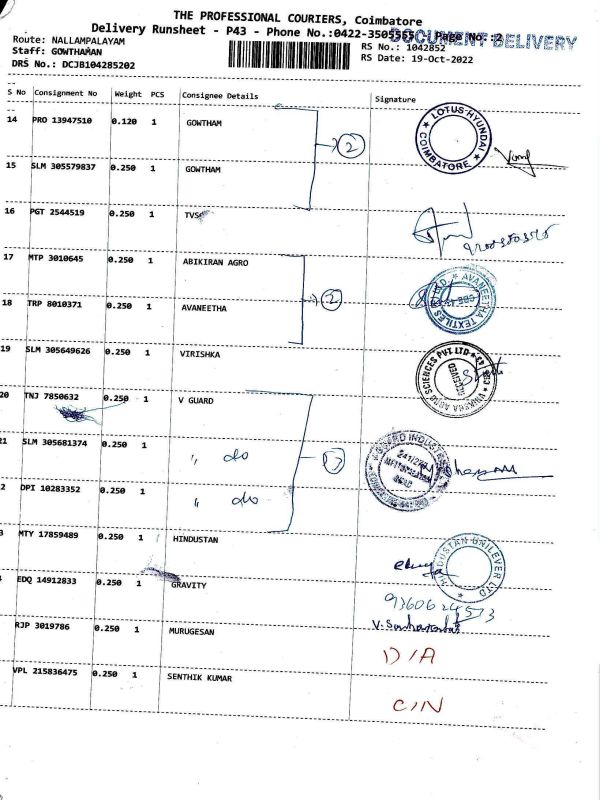 THE PROFESSIONAL COURIERS, Coimbatore
Delivery Runsheet - P43 - Phone No.:0422-3505565 - Page No.:2
DOCUMENT DELIVERY
Route: NALLAMPALAYAM
RS No.: 1042852
Staff: GOWTHAMAN
RS Date: 19-Oct-2022
DRS No.: DCJB104285202
S No Consignment No Weight PCS Consignee Details Signature
14 PRO 13947510 0.120 1 GOWTHAM
2
LOTUS HYUNDAI COIMBATORE
15 SLM 305579837 0.250 1 GOWTHAM
16 PGT 2544519 0.250 1 TVS
17 MTP 3010645 0.250 1 ABIKIRAN AGRO
2
18 TRP 8010371 0.250 1 AVANEETHA
AVANEETHA TEXTILES
19 SLM 305649626 0.250 1 VIRISHKA
SCIENCES PVT LTD
RECEIVED
20 TNJ 7850632 0.250 1 V GUARD
21 SLM 305681374 0.250 1 " do
2 DPI 10283352 0.250 1 " do
MTY 17859489 0.250 1 HINDUSTAN
HINDUSTAN UNILEVER LTD
EDQ 14912833 0.250 1 GRAVITY
9360624573
RJP 3019786 0.250 1 MURUGESAN
D/A
VPL 215836475 0.250 1 SENTHIK KUMAR
C/N